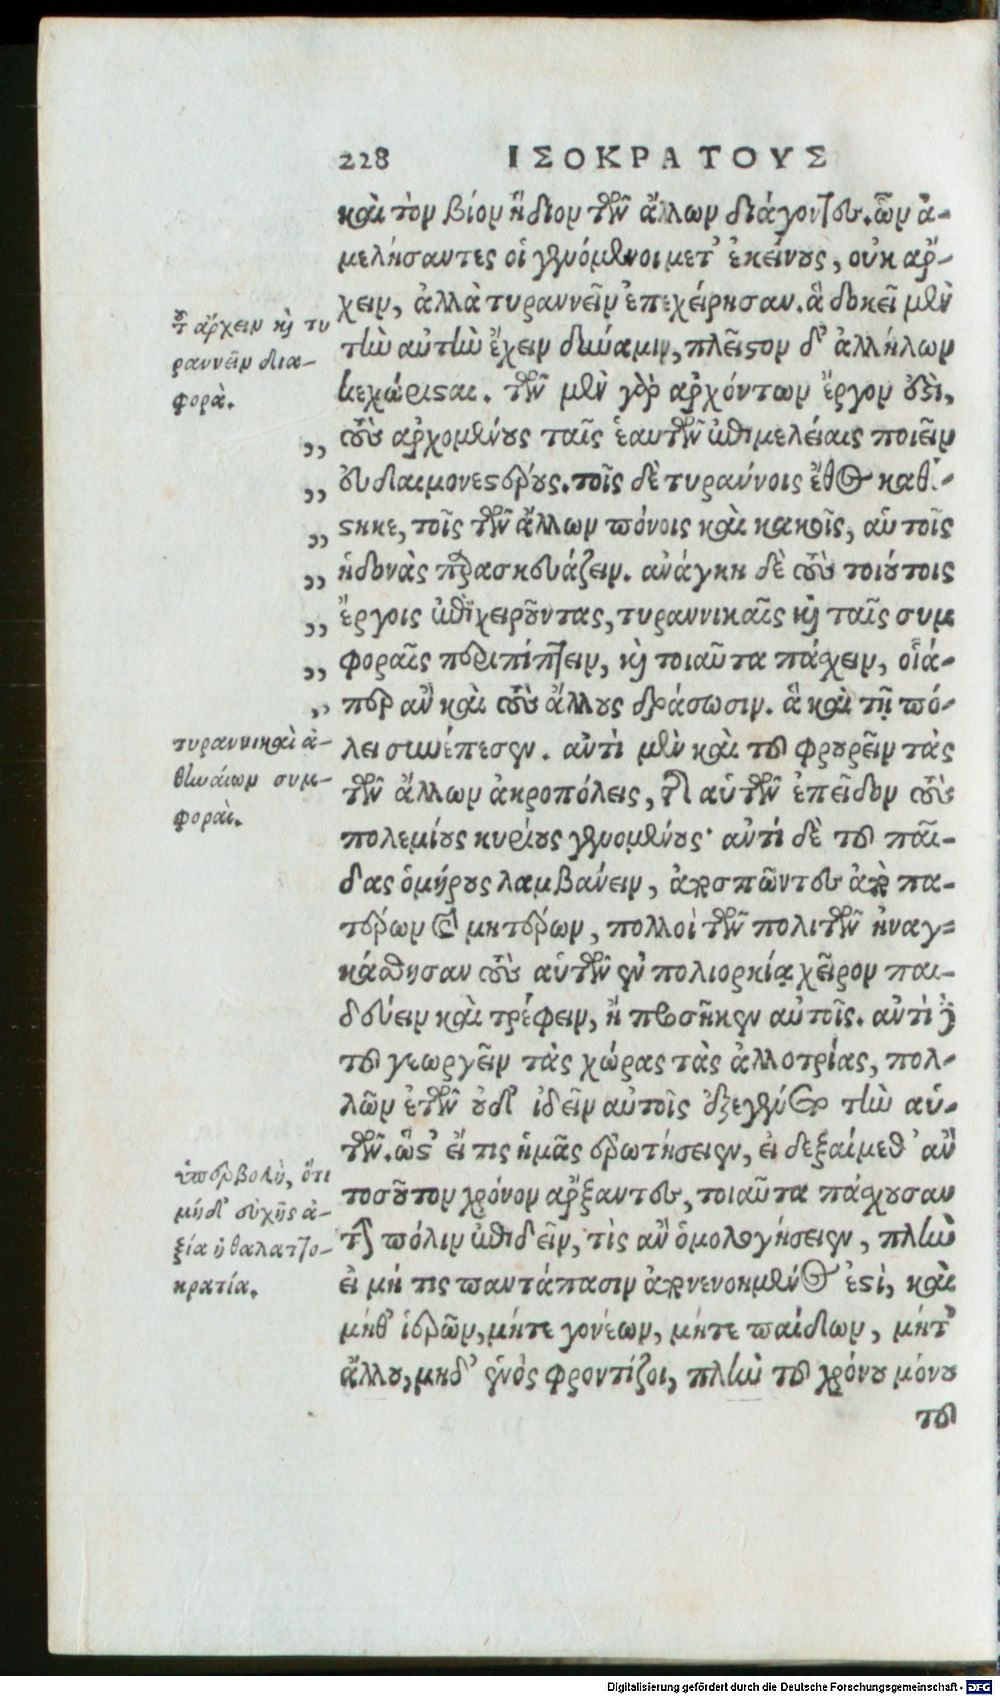 228 ΙΣΟΚΡΑΤΟΥΣ
καὶ τὸν βίον ἥδιον τῶν ἄλλων διάγοντες. ὧν ἀ-
μελήσαντες οἱ γενόμενοι μετ' ἐκείνους, οὐκ ἄρ-
χειν, ἀλλὰ τυραννεῖν ἐπεχείρησαν. ἃ δοκεῖ μὲν
τὴν αὐτὴν ἔχειν δύναμιν, πλεῖστον δ' ἀλλήλων
κεχώρισται. τῶν μὲν γὰρ ἀρχόντων ἔργον ἐστὶ,
τοῦ ἄρχειν καὶ τυ
ραννεῖν δια-
φορὰ.
,, τοὺς ἀρχομένους ταῖς ἑαυτῶν ἐπιμελείαις ποιεῖν
,, εὐδαιμονεστέρους. τοῖς δὲ τυράννοις ἔθος καθέ-
,, στηκε, τοῖς τῶν ἄλλων πόνοις καὶ κακοῖς, αὑτοῖς
,, ἡδονὰς παρασκευάζειν. ἀνάγκη δὲ τοὺς τοιούτοις
,, ἔργοις ἐπιχειροῦντας, τυραννικαῖς καὶ ταῖς συμ
,, φοραῖς περιπίπτειν, καὶ τοιαῦτα πάσχειν, οἷά-
,, περ ἂν καὶ τοὺς ἄλλους δράσωσιν. ἃ καὶ τῇ πό-
λει συνέπεσεν. ἀντὶ μὲν καὶ τοῦ φρουρεῖν τὰς
τῶν ἄλλων ἀκροπόλεις, τῆς αὑτῶν ἐπεῖδον τοὺς
πολεμίους κυρίους γενομένους· ἀντὶ δὲ τοῦ παῖ-
τυραννικαὶ ἀ-
θηναίων συμ-
φοραὶ.
δας ὁμήρους λαμβάνειν, ἀποσπῶντες ἀπὸ πα-
τέρων καὶ μητέρων, πολλοὶ τῶν πολιτῶν ἠναγ-
κάσθησαν τοὺς αὑτῶν ἐν πολιορκίᾳ χεῖρον παι-
δεύειν καὶ τρέφειν, ἢ προσῆκεν αὐτοῖς. ἀντὶ δὲ
τοῦ γεωργεῖν τὰς χώρας τὰς ἀλλοτρίας, πολ-
λῶν ἐτῶν οὐδ' ἰδεῖν αὐτοῖς ἐξεγένετο τὴν αὑ-
τῶν. ὥστ' εἴ τις ἡμᾶς ἐρωτήσειεν, εἰ δεξαίμεθ' ἂν
τοσοῦτον χρόνον ἄρξαντες, τοιαῦτα πάσχουσαν
τὴν πόλιν ἐπιδεῖν, τίς ἂν ὁμολογήσειεν, πλὴν
εἰ μή τις παντάπασιν ἀπονενοημένος ἐστὶ, καὶ
ὑπερβολὴ, ὅτι
μηδ' εὐχῆς ἀ-
ξία ἡ θαλαττο-
κρατία.
μήθ' ἱερῶν, μήτε γονέων, μήτε παίδων, μήτ'
ἄλλου, μηδ' ἑνὸς φροντίζοι, πλὴν τοῦ χρόνου μόνου
τοῦ
Digitalisierung gefördert durch die Deutsche Forschungsgemeinschaft - DFG